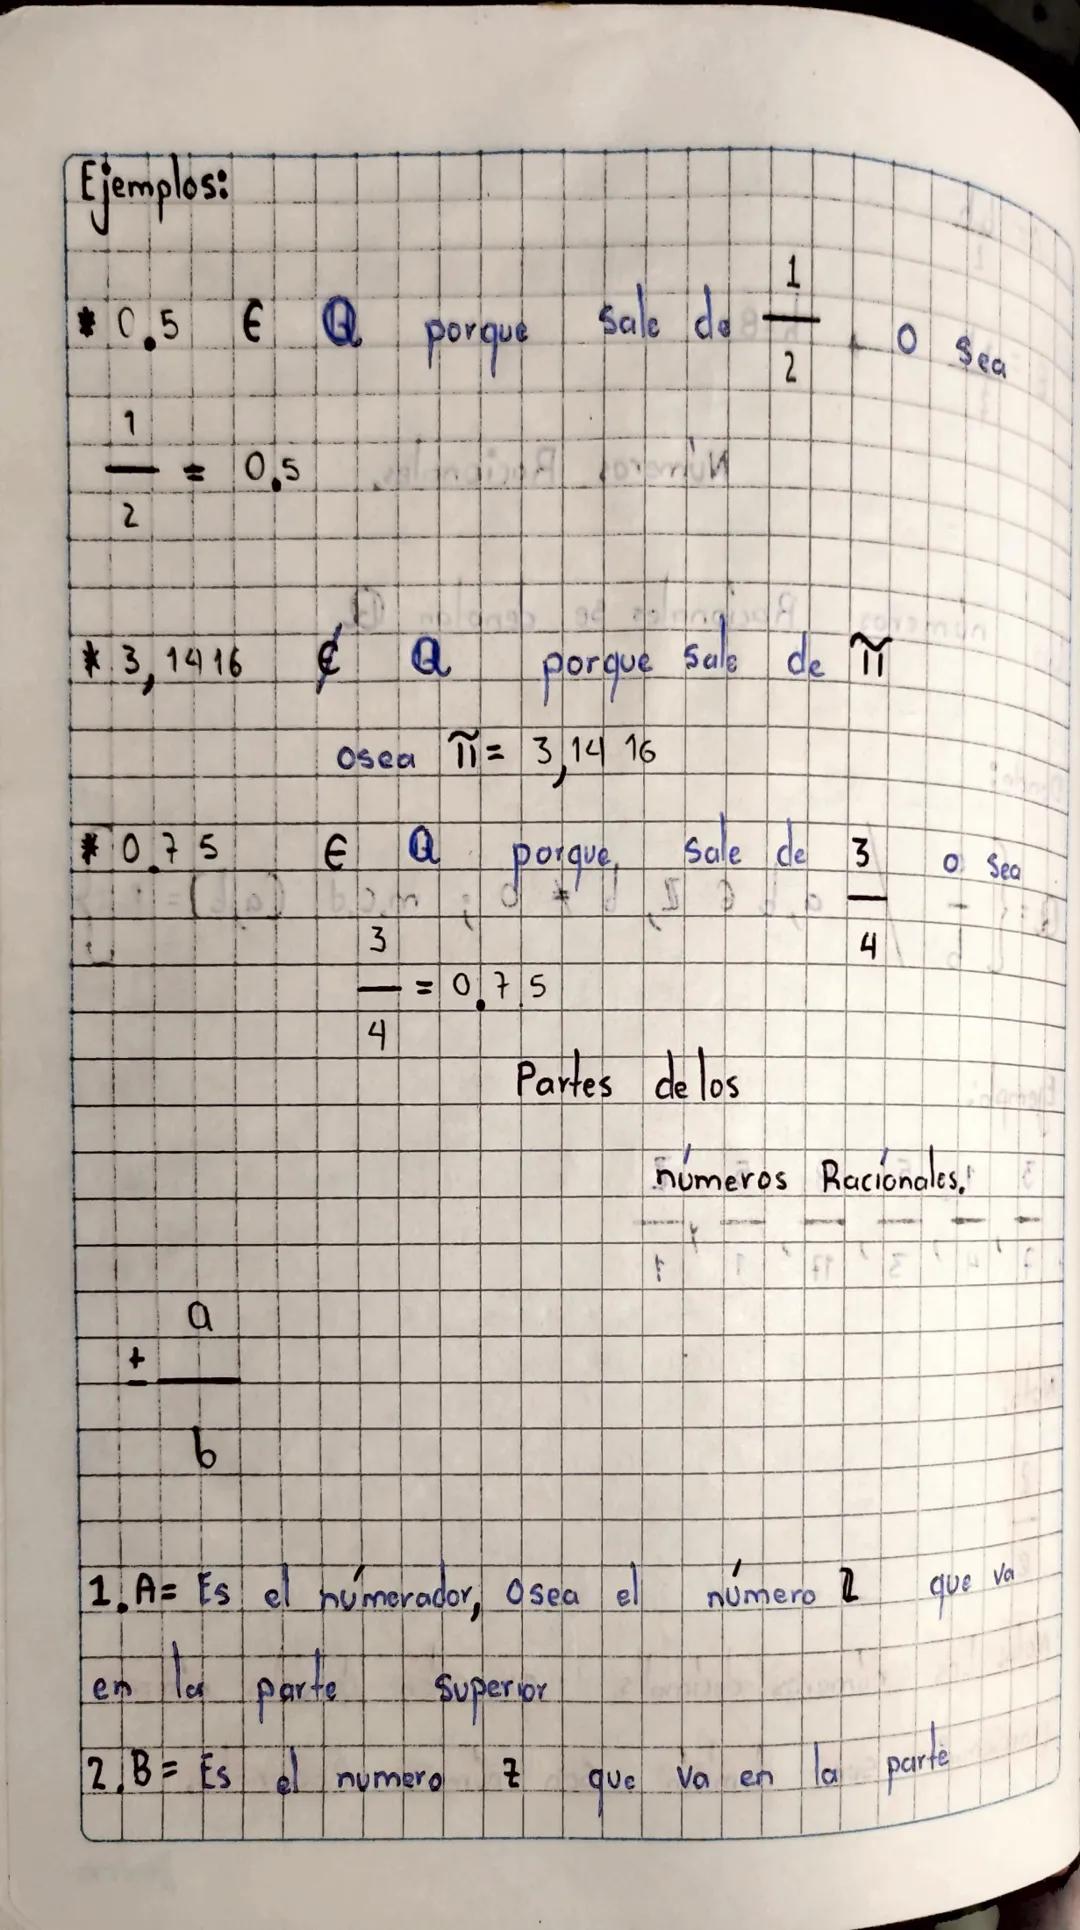 Ejemplos:
* 0.5 ∈ ℚ porque sale de 1/2, o sea
1/2 = 0,5
* 3,1416 ∉ ℚ porque sale de π
osea π = 3,1416
* 0.75 ∈ ℚ porque, sale de 3/4 o sea
3/4 = 0,75
Partes de los
números Racionales.
± a/b
1. A = Es el númerador, osea el número Z que va
en la parte superior
2. B = Es el numero Z que va en la parte